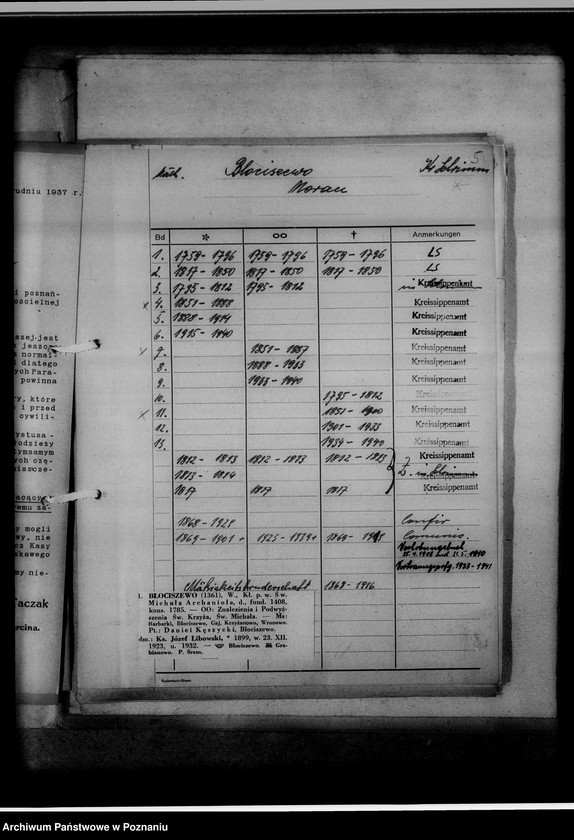 rudniu 1937 r.
i poznań-
ościelnej
azej-jest
s jeszcze
s normal-
i dlatego
ych Para-
powinna
ry, które
s i przed
cywili-
ystusa -
łodzieży
ymsamym
ych czę-
niszcze-
acący
emu za-
y mogli
wy, nie
z Kasy
kkawego
my nie-
Taczak
arcina.
5
kath. Blociszewo Kr Schrimm
Moran
Bd * oo † Anmerkungen
1. 1759-1796 1759-1796 1759-1796 LS
2. 1817-1850 1817-1850 1817-1850 LS
3. 1795-1812 1795-1812 Kreissippenamt
x 4. 1851-1888 Kreissippenamt
5. 1888-1914 Kreissippenamt
6. 1915-1940 Kreissippenamt
x 7. 1851-1887 Kreissippenamt
8. 1888-1923 Kreissippenamt
9. 1923-1940 Kreissippenamt
10. 1795-1812 Kreissippenamt
x 11. 1851-1900 Kreissippenamt
12. 1901-1923 Kreissippenamt
13. 1934-1940 Kreissippenamt
1812-1813 1812-1813 1812-1813 Kreissippenamt
1813-1814 Kreissippenamt
1817 1817 1817 Kreissippenamt
1868-1929 Confir
1869-1901+ 1925-1939+ Communic.
Verlobungsbuch
Trauungsprot. 1933-1941
Mässigkeitsbruderschaft 1868-1916
1. BŁOCISZEWO (1361), W., Kł. p. w. Św.
Michała Archanioła, d., fund. 1408,
kons. 1785. — OO: Znalezienia i Podwyż-
szenia Św. Krzyża, Św. Michała. — Ms:
Barbarki, Błociszewo, Gaj, Krzyżanowa, Wronowo.
Pt.: Daniel Kęszycki, Błociszewo.
dm.: Ks. Józef Libowski, * 1899, w. 23. XII.
1923, u. 1932. — Błociszewo. Gra-
bianowo. P. Śrem.
Archiwum Państwowe w Poznaniu